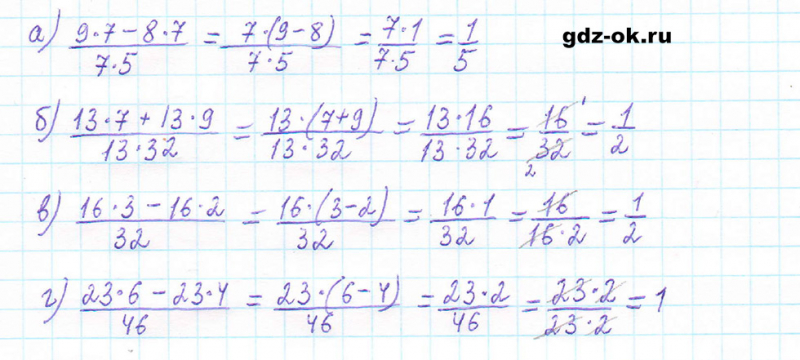 а) (9·7 − 8·7)/(7·5) = (7·(9−8))/(7·5) = (7·1)/(7·5) = 1/5
gdz-ok.ru
б) (13·7 + 13·9)/(13·32) = (13·(7+9))/(13·32) = (13·16)/(13·32) = 16 1/32 2 = 1/2
в) (16·3 − 16·2)/32 = (16·(3−2))/32 = (16·1)/32 = 16/(16·2) = 1/2
г) (23·6 − 23·4)/46 = (23·(6−4))/46 = (23·2)/46 = (23·2)/(23·2) = 1